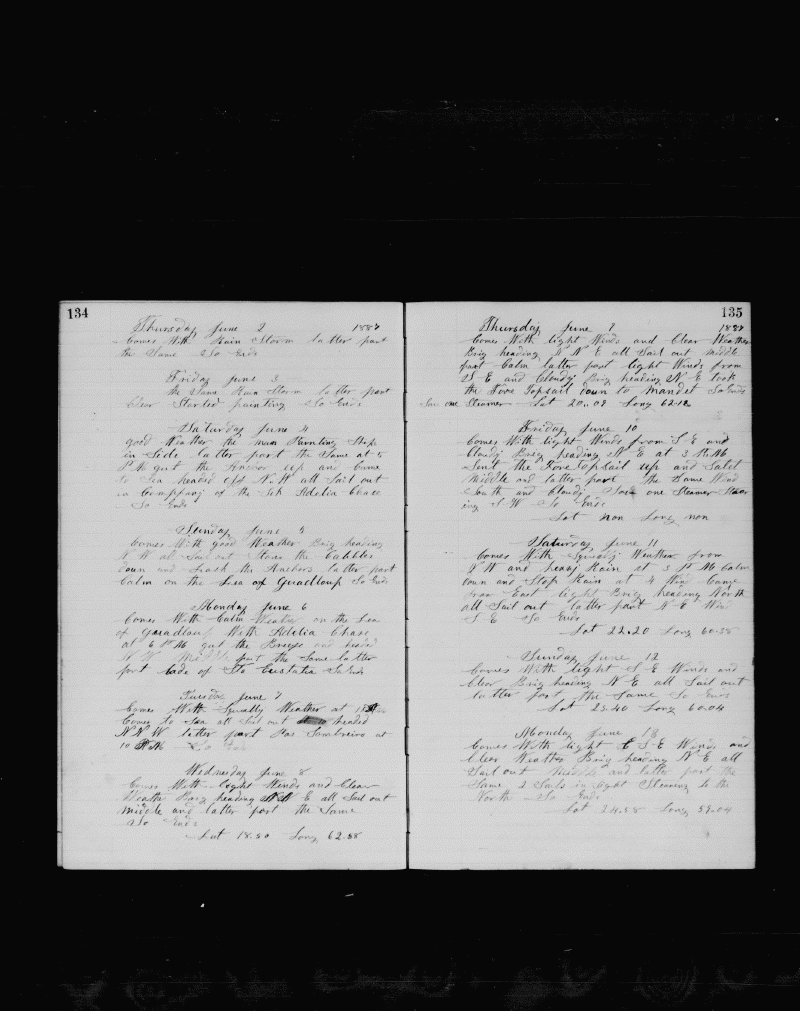 134
Thursday June 2 1887
Comes With Rain Storm latter part
the Same So Ends
Friday June 3
the Same Rain Storm latter part
Clear Started painting So Ends
Saturday June 4
good Weather the man Painting Ship
in Side latter part the Same at 5
P M gut the Anchor up and Came
to Sea headed off N W all Sail out
in Company of the Sch Adelia Chase
So Ends
Sunday June 5
Comes With good Weather Brig heading
N W all Sail out Store the Cabbles
Doun and Lash the Anchors latter part
Calm on the Lea of Guadloup So Ends
Monday June 6
Comes With Calm Weather on the Lea
of Guadloup With Adelia Chase
at 6 P M gut the Breeze and headed
part the Same latter
part Lede of St Eustatia So Ends
Tuesdae June 7
Comes With Squally Weather at
Comes to Sea all Sail out headed
N N W latter part Pas Sombreiro at
10 So Ends
Wednesday June 8
Comes With Light Winds and Clear
Weather Brig heading E all Sail out
middle and latter part the Same
So Ends
Lat 18.50 Long 62.58
135
Thursday June 1887
Comes With light Winds and Clear Weather
Brig heading N N E all Sail out middle
part Calm latter part light Winds from
S E and Cloudy Brig heading N E took
the Fore Topsail doun to mandet So Ends
Saw one Steamer Lat 20.09 Long 62.12
Friday June 10
Comes With light Winds from S E and
Cloudy Brig heading N E at 3 P M
Sent the Fore Topsail up and Satet
Middle and latter part the Same Wind
South and Cloudy Saw one Steamer Steer
ing S W So Ends
Lat non Long non
Saturday June 11
Comes With Squaly Weather from
S W and heavy Rain at 3 P M Calm
Doun and Stop Rain at 4 Wind Came
from East light Brig heading North
all Sail out latter part N E Win
S E So Ends
Lat 22.20 Long 60.58
Sunday June 12
Comes With light S E Winds and
Clear Brig heading N E all Sail out
latter part the Same So Ends
Lat 23.40 Long 60.04
Monday June 13
Comes With light S E Winds and
Clear Weather Brig heading N E all
Sail out Middle and latter part the
Same 2 Sails in light Stearing to the
North So Ends
Lat 24.58 Long 59.04